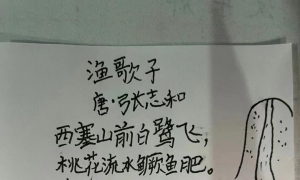 渔歌子
唐·张志和
西塞山前白鹭飞，
桃花流水鳜鱼肥。